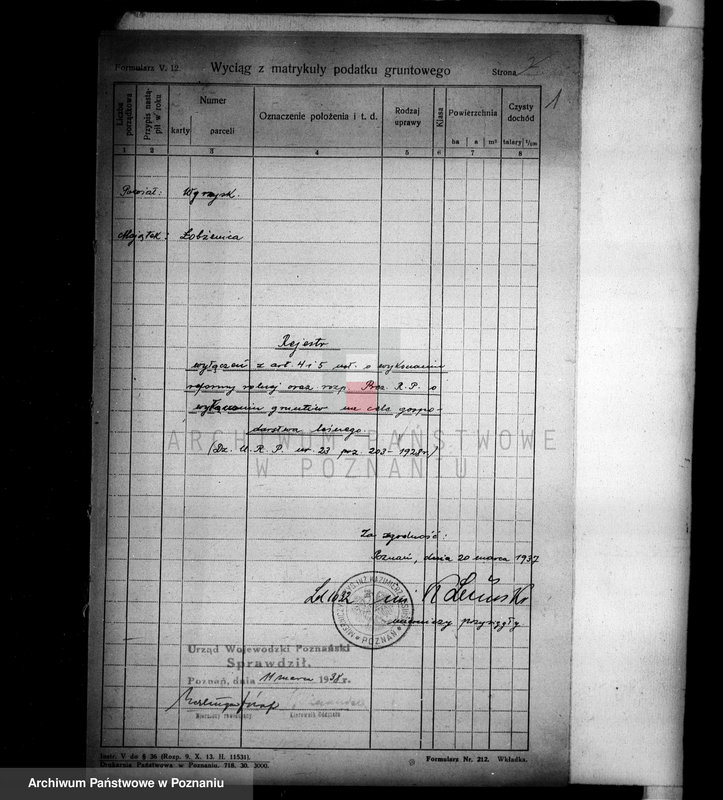 Formularz V. 12.
Wyciąg z matrykuły podatku gruntowego
Strona 2
1
Liczba porządkowa
Przypis nastąpił w roku
Numer
karty
parceli
Oznaczenie położenia i t. d.
Rodzaj uprawy
Klasa
Powierzchnia
ha a m²
Czysty dochód
talary
1 2 3 4 5 6 7 8
Powiat: Wyrzysk.
Majątek: Łobżenica
Rejestr
wyłączeń z art. 4 i 5 ust. o wykonaniu
reformy rolnej oraz rozp. Prez. R. P. o
wyłączeniu gruntów na cele gospo-
darstwa leśnego.
(Dz. U. R. P. nr. 23 poz. 203 - 1928 r.)
ARCHIWUM PAŃSTWOWE
W POZNANIU
Za zgodność:
Poznań, dnia 20 marca 1937
mierniczy przysięgły
POZNAŃ
Urząd Wojewódzki Poznański
Sprawdził.
Poznań, dnia 11 marca 1938 r.
Mierniczy rewidujący
Kierownik Oddziału
Instr. V do § 36 (Rozp. 9. X. 13. H. 11531).
Drukarnia Państwowa w Poznaniu. 718. 30. 3000.
Formularz Nr. 212. Wkładka.
Archiwum Państwowe w Poznaniu